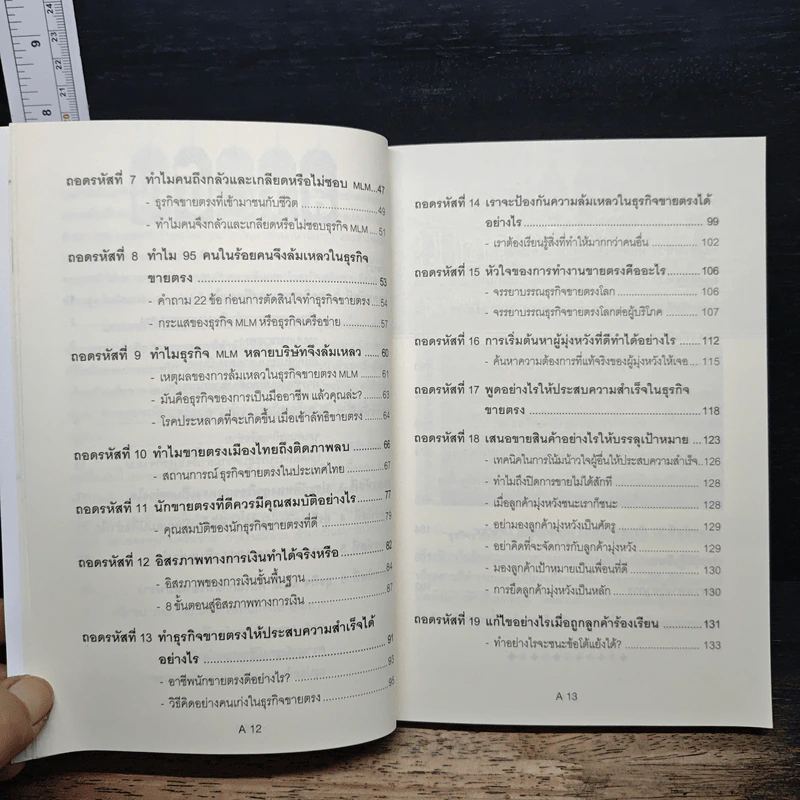 9
8
24
23
22
21
20
ถอดรหัสที่ 7 ทำไมคนถึงกลัวและเกลียดหรือไม่ชอบ MLM...47
- ธุรกิจขายตรงที่เข้ามาชนกับชีวิต ...................... 49
- ทำไมคนจึงกลัวและเกลียดหรือไม่ชอบธุรกิจ MLM .... 51
ถอดรหัสที่ 8 ทำไม 95 คนในร้อยคนจึงล้มเหลวในธุรกิจ
ขายตรง ............................................. 53
- คำถาม 22 ข้อ ก่อนการตัดสินใจทำธุรกิจขายตรง ....54
- กระแสของธุรกิจ MLM หรือธุรกิจเครือข่าย ........... 57
ถอดรหัสที่ 9 ทำไมธุรกิจ MLM หลายบริษัทจึงล้มเหลว ..... 60
- เหตุผลของการล้มเหลวในธุรกิจขายตรง MLM ....... 61
- มันคือธุรกิจของการเป็นมืออาชีพ แล้วคุณล่ะ? ........63
- โรคประหลาดที่จะเกิดขึ้น เมื่อเข้าลัทธิขายตรง ....... 64
ถอดรหัสที่ 10 ทำไมขายตรงเมืองไทยถึงติดภาพลบ ......... 66
- สถานการณ์ ธุรกิจขายตรงในประเทศไทย ............ 67
ถอดรหัสที่ 11 นักขายตรงที่ดีควรมีคุณสมบัติอย่างไร ....... 77
- คุณสมบัติของนักธุรกิจขายตรงที่ดี .................... 79
ถอดรหัสที่ 12 อิสรภาพทางการเงินทำได้จริงหรือ ............ 82
- อิสรภาพของการเงินขั้นพื้นฐาน ....................... 84
- 8 ขั้นตอนสู่อิสรภาพทางการเงิน ...................... 87
ถอดรหัสที่ 13 ทำธุรกิจขายตรงให้ประสบความสำเร็จได้
อย่างไร ............................................ 91
- อาชีพนักขายตรงดีอย่างไร? ........................... 93
- วิธีคิดอย่างคนเก่งในธุรกิจขายตรง .................... 95
A 12
ถอดรหัสที่ 14 เราจะป้องกันความล้มเหลวในธุรกิจขายตรงได้
อย่างไร ............................................. 99
- เราต้องเรียนรู้สิ่งที่ทำให้มากกว่าคนอื่น .............. 102
ถอดรหัสที่ 15 หัวใจของการทำงานขายตรงคืออะไร ........... 106
- จรรยาบรรณธุรกิจขายตรงโลก ........................ 106
- จรรยาบรรณธุรกิจขายตรงโลกต่อผู้บริโภค ............ 107
ถอดรหัสที่ 16 การเริ่มต้นหาผู้มุ่งหวังที่ดีทำได้อย่างไร ....... 112
- ค้นหาความต้องการที่แท้จริงของผู้มุ่งหวังให้เจอ .... 115
ถอดรหัสที่ 17 พูดอย่างไรให้ประสบความสำเร็จในธุรกิจ
ขายตรง ............................................ 118
ถอดรหัสที่ 18 เสนอขายสินค้าอย่างไรให้บรรลุเป้าหมาย ... 123
- เทคนิคในการโน้มน้าวใจผู้อื่นให้ประสบความสำเร็จ..126
- ทำไมถึงปิดการขายไม่ได้สักที ........................ 128
- เมื่อลูกค้ามุ่งหวังชนะเราก็ชนะ ....................... 128
- อย่ามองลูกค้ามุ่งหวังเป็นศัตรู ........................ 129
- อย่าคิดที่จะจัดการกับลูกค้ามุ่งหวัง .................. 129
- มองลูกค้าเป้าหมายเป็นเพื่อนที่ดี ..................... 130
- การยึดลูกค้ามุ่งหวังเป็นหลัก ......................... 130
ถอดรหัสที่ 19 แก้ไขอย่างไรเมื่อถูกลูกค้าร้องเรียน ............ 131
- ทำอย่างไรจะชนะข้อโต้แย้งได้? ....................... 133
A 13